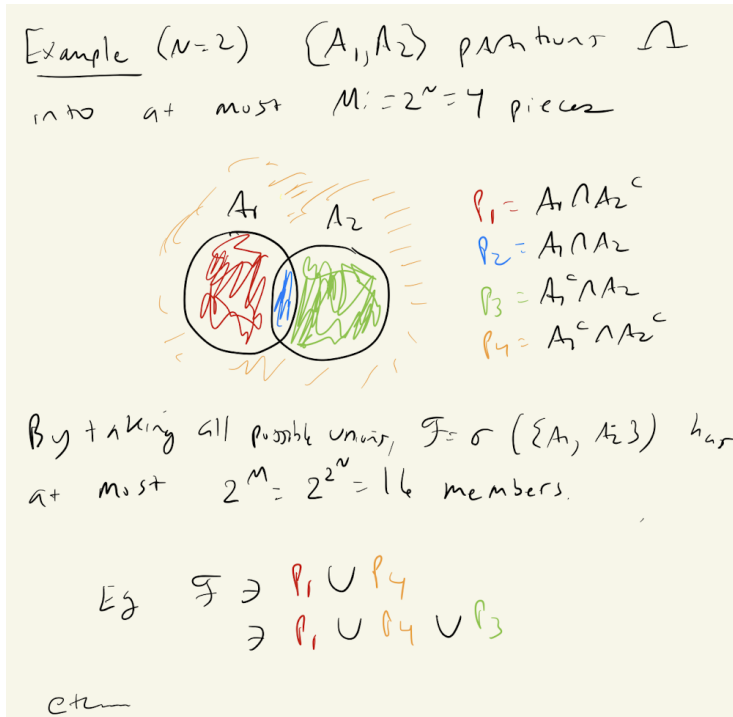 Example (N=2) {A₁, A₂} partitions Ω
into at most M:=2ᴺ=4 pieces
A₁ A₂
P₁ = A₁ ∩ A₂ᶜ
P₂ = A₁ ∩ A₂
P₃ = A₁ᶜ ∩ A₂
P₄ = A₁ᶜ ∩ A₂ᶜ
By taking all possible unions, ℱ = σ ({A₁, A₂}) has
at most 2^M = 2^2^N = 16 members.
Eg ℱ ∋ P₁ ∪ P₄
∋ P₁ ∪ P₄ ∪ P₃